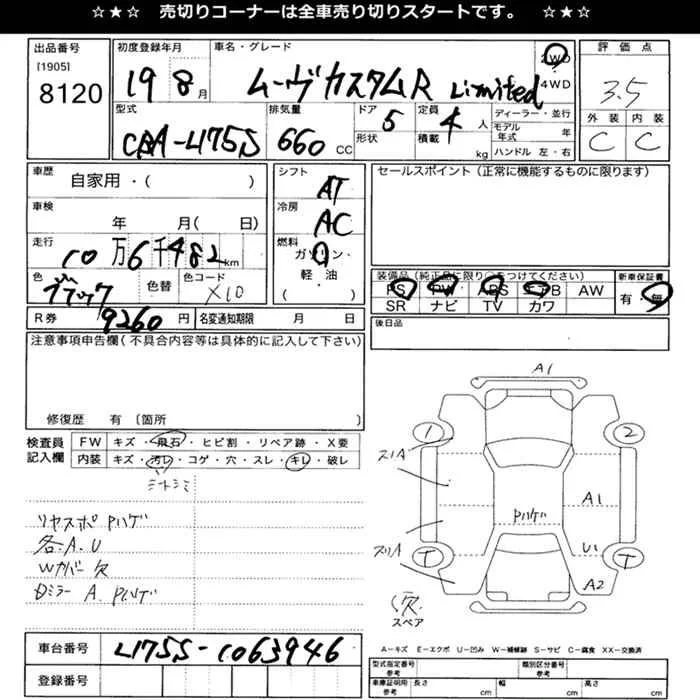 ☆★☆ 売切りコーナーは全車売り切りスタートです。 ☆★☆
出品番号 初度登録年月 車名・グレード 2WD 評価点
[1905] 8120 19 8月 ムーヴカスタムR Limited 4WD 3.5
型式 排気量 ドア 5 定員 4人 ディーラー・並行 外装 内装
CBA-L175S 660 CC 形状 積載 kg モデル年式 年 C C
ハンドル 左・右
車歴 自家用・( ) シフト AT セールスポイント(正常に機能するものに限ります)
車検 年 月( 日) 冷房 AC
走行 10万6千482km 燃料 ガソリン・軽・油 ( )
色 ブラック 色替 色コード X10 装備品(純正品に限り○をつけてください) 新車保証書
PS PW ABS エアB AW 有・無
SR ナビ TV カワ
R券 9260円 名変通知期限 月 日 後日品
注意事項申告欄(不具合内容等は具体的に記入して下さい)
修復歴 有 〔箇所 〕
検査員記入欄 FW キズ・飛石・ヒビ割・リペア跡・X要
内装 キズ・汚レ・コゲ・穴・スレ・キレ・破レ
シートシミ
リヤスポ Pハゲ
各.A.U
Wカバー欠
Dミラー A. Pハゲ
A1
1 2
スリA
Pハゲ A1
スリA U1
T T
A2
欠
スペア
A−キズ E−エクボ U−凹み W−補修跡 S−サビ C−腐食 XX−交換済
車台番号 L175S-1063946
登録番号
型式指定番号 参考 類別区分番号 参考
車庫証明用 参考 長さ cm 幅 cm 高さ cm